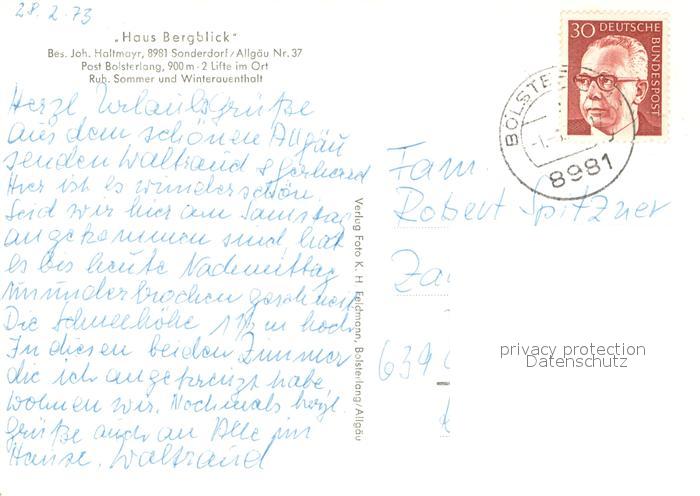 28.2.73
„Haus Bergblick“
Bes. Joh. Haltmayr, 8981 Sonderdorf/Allgäu Nr. 37
Post Bolsterlang, 900 m - 2 Lifte im Ort
Ruh. Sommer und Winterauenthalt
Herzl Urlaubsgrüße
aus dem schönen Allgäu
senden Waltraud & Gerhard
Hier ist es wunderschön.
Seid wir hier am Samstag
angekommen sind, hat
es bis heute Nachmittag
ununderbrochen geschneit
Die Schneehöhe 1½ m hoch
In diesen beiden Zimmer
die ich angekreuzt habe,
wohnen wir. Nochmals herzl.
Grüße auch an Alle im
Hause. Waltraud
Verlag Foto K. H. Feldmann, Bolsterlang/Allgäu
30 DEUTSCHE BUNDESPOST
BOLSTE
8981
Fam.
Robert Spitzner
639
privacy protection
Datenschutz